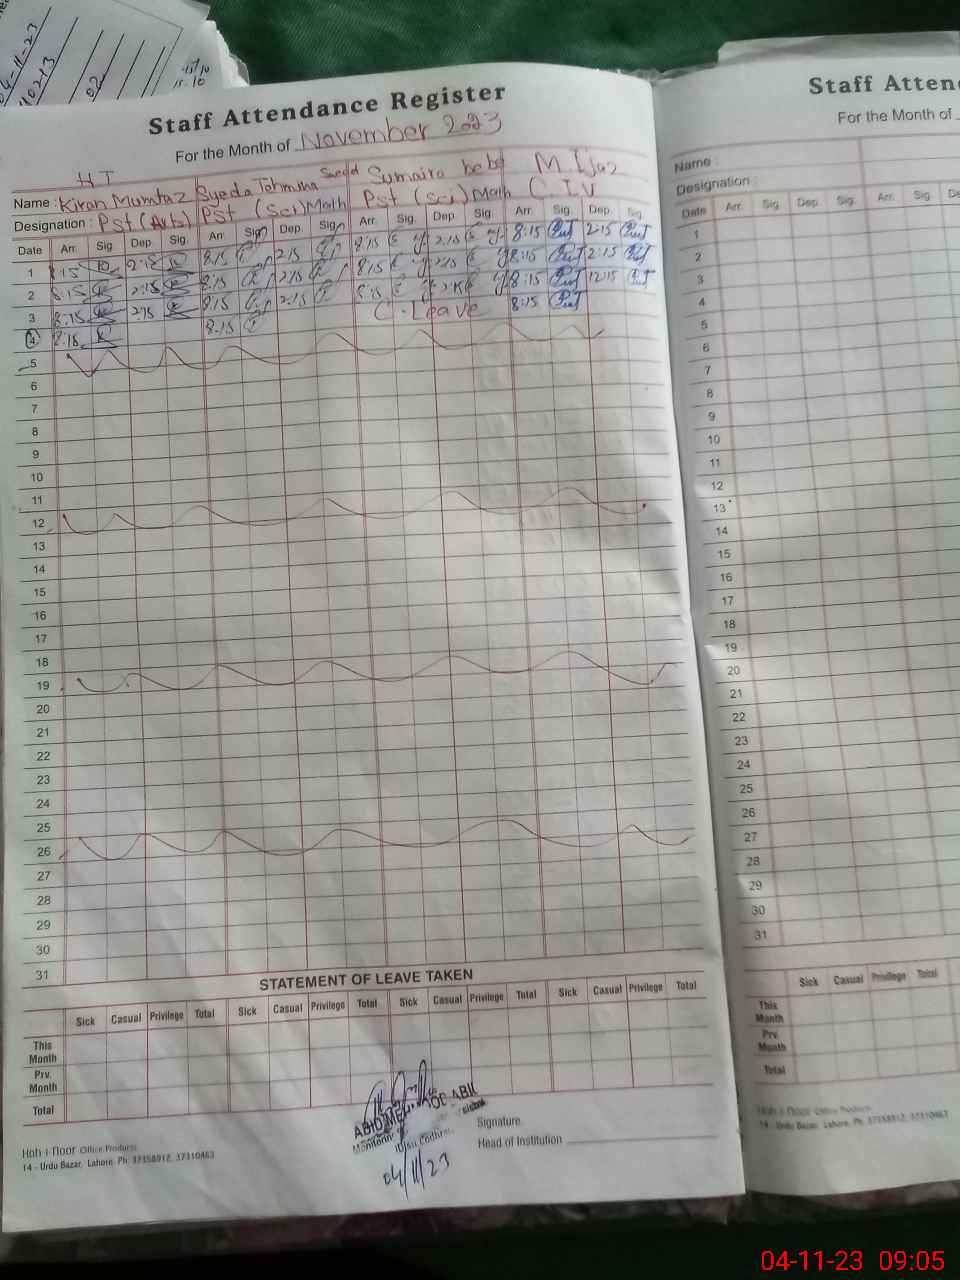 04-11-23
Staff Attendance Register
For the Month of November 2023
H.T
Name : Kiran Mumtaz Syeda Tahmina Saeed Sumaira bebe M. Ijaz
Designation : Pst (Arts) Pst (Sci) Math Pst (Sci) Math C. I. V
Date Arr. Sig. Dep. Sig. Arr. Sig. Dep. Sig. Arr. Sig. Dep. Sig. Arr. Sig. Dep. Sig.
1 8:15 2:15 8:15 2:15 8:15 2:15 8:15 2:15
2 8:15 2:15 8:15 2:15 8:15 2:15 8:15 2:15
3 8:15 2:15 8:15 2:15 8:15 2:15 8:15 12:15
4 8:15 8:15 C. Leave 8:15
5
6
7
8
9
10
11
12
13
14
15
16
17
18
19
20
21
22
23
24
25
26
27
28
29
30
31
STATEMENT OF LEAVE TAKEN
Sick Casual Privilege Total Sick Casual Privilege Total Sick Casual Privilege Total Sick Casual Privilege Total
This Month
Prv. Month
Total
04/11/23
Signature
Head of Institution
Koh-i-Noor Office Products
14 - Urdu Bazar, Lahore. Ph: 37358912, 37310463
Staff Atten
For the Month of
Name :
Designation :
Date Arr. Sig. Dep. Sig. Arr. Sig. De
1
2
3
4
5
6
7
8
9
10
11
12
13
14
15
16
17
18
19
20
21
22
23
24
25
26
27
28
29
30
31
Sick Casual Privilege Total
This Month
Prv. Month
Total
Koh-i-Noor Office Products
14 - Urdu Bazar, Lahore. Ph: 37358912, 37310463
04-11-23 09:05